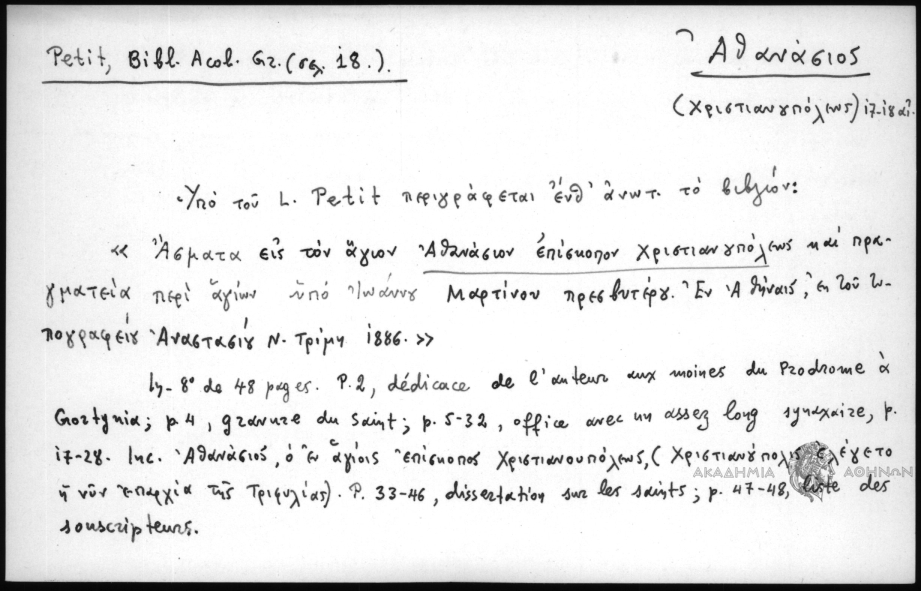 Petit, Bibl. Acol. Gr. (σελ. 18.).
Ἀθανάσιος
(Χριστιανουπόλεως) 17-18 αἰ.
Ὑπό τοῦ L. Petit περιγράφεται ἔνθ' ἀνωτ. τό βιβλίον:
« Ἄσματα εἰς τόν ἅγιον Ἀθανάσιον ἐπίσκοπον Χριστιανουπόλεως καί πρα-
γματεία περί ἁγίων ὑπό Ἰωάννου Μαρτίνου πρεσβυτέρου. Ἐν Ἀθήναις, ἐκ τοῦ τυ-
πογραφείου Ἀναστασίου Ν. Τρίμη 1886. »
In-8° de 48 pages. P. 2, dédicace de l'auteur aux moines du Prodrome à
Gortynia; p. 4, gravure du Saint; p. 5-32, office avec un assez long synaxaire, p.
17-28. Inc. Ἀθανάσιος, ὁ ἐν ἁγίοις ἐπίσκοπος Χριστιανουπόλεως, (Χριστιανούπολις ἐλέγετο
ἡ νῦν ἐπαρχία τῆς Τριφυλίας). P. 33-46, dissertation sur les saints; p. 47-48, liste des
souscripteurs.
ΑΚΑΔΗΜΙΑ ΑΘΗΝΩΝ